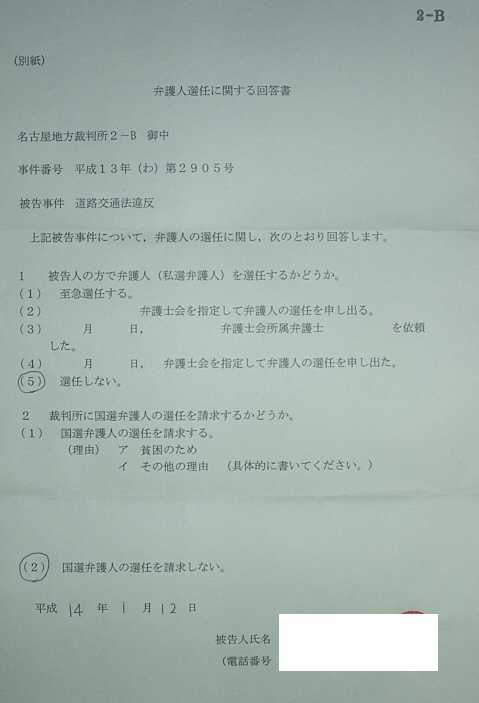 2-B
(別紙)
弁護人選任に関する回答書
名古屋地方裁判所2-B 御中
事件番号 平成13年(わ)第2905号
被告事件 道路交通法違反
上記被告事件について,弁護人の選任に関し,次のとおり回答します。
1 被告人の方で弁護人(私選弁護人)を選任するかどうか。
(1) 至急選任する。
(2) 弁護士会を指定して弁護人の選任を申し出る。
(3) 月 日, 弁護士会所属弁護士 を依頼
した。
(4) 月 日, 弁護士会を指定して弁護人の選任を申し出た。
(5) 選任しない。
2 裁判所に国選弁護人の選任を請求するかどうか。
(1) 国選弁護人の選任を請求する。
(理由) ア 貧困のため
イ その他の理由 (具体的に書いてください。)
(2) 国選弁護人の選任を請求しない。
平成 14 年 1 月 12 日
被告人氏名
(電話番号